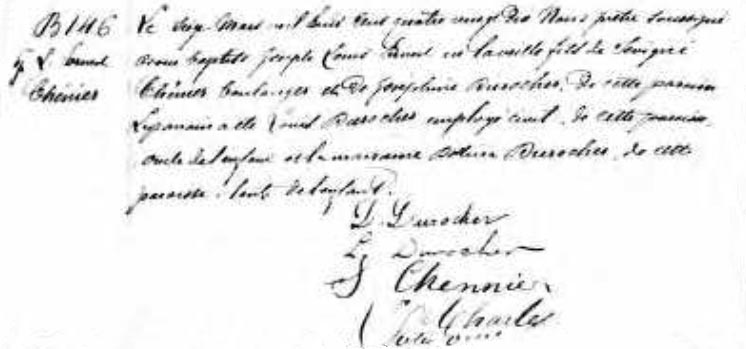 B146
J. L. Ernest
Chénier
Le sept Mars mil huit cent quatre vingt dix Nous prêtre soussigné
avons baptisé Joseph Louis Ernest né la veille fils de
Chénier boulanger et de Joséphine Durocher, de cette paroisse
Le parrain a été Louis Durocher employé civil, de cette paroisse,
oncle de l'enfant et la marraine Durocher, de cette
paroisse, tante de l'enfant.
D. Durocher
L. Durocher
Chennier
Charles